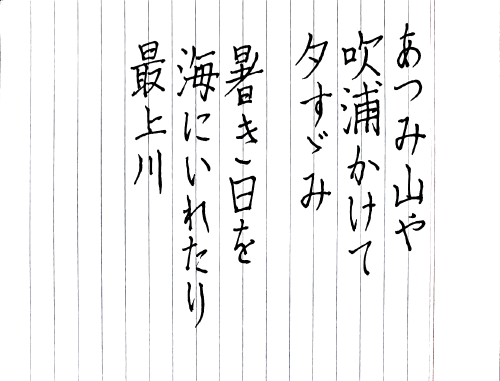 あつみ山や
吹浦かけて
夕すゞみ
暑き日を
海にいれたり
最上川